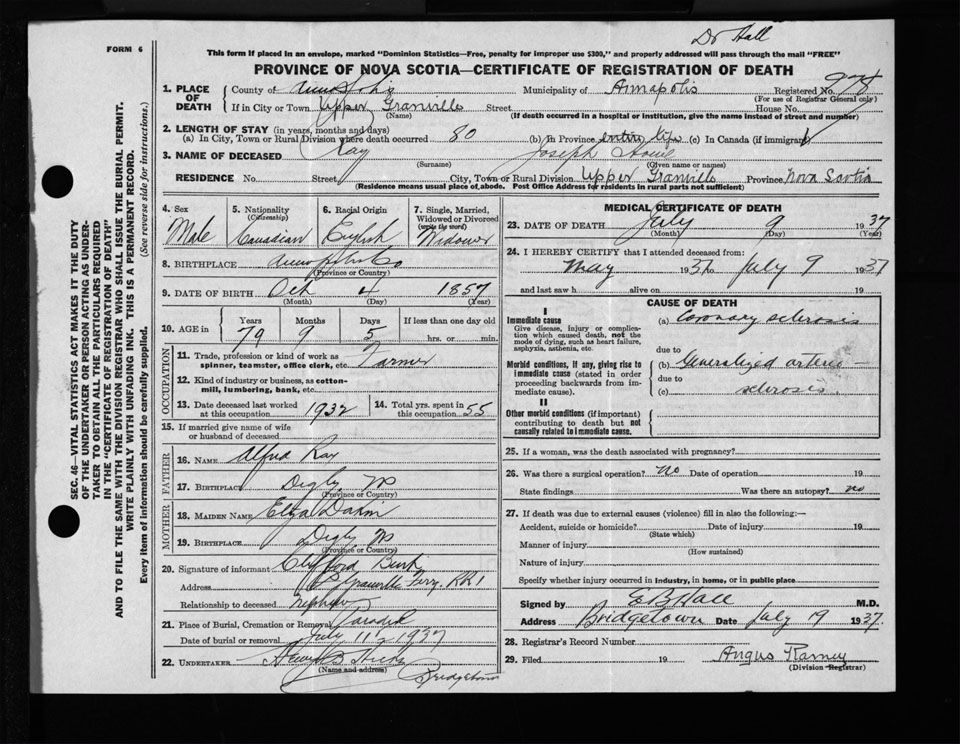 Dr Hall
FORM 6
This form if placed in an envelope, marked "Dominion Statistics—Free, penalty for improper use $300," and properly addressed will pass through the mail "FREE"
PROVINCE OF NOVA SCOTIA—CERTIFICATE OF REGISTRATION OF DEATH
1. PLACE OF DEATH County of Annapolis Municipality of Annapolis Registered No.
(For use of Registrar General only)
If in City or Town Upper Granville Street House No.
(Name) (If death occurred in a hospital or institution, give the name instead of street and number)
2. LENGTH OF STAY (in years, months and days)
(a) In City, Town or Rural Division where death occurred 80 (b) In Province entire life (c) In Canada (if immigrant)
3. NAME OF DECEASED Ray Joseph Howe
(Surname) (Given name or names)
RESIDENCE No. Street City, Town or Rural Division Upper Granville Province Nova Scotia
(Residence means usual place of abode. Post Office Address for residents in rural parts not sufficient)
SEC. 46—VITAL STATISTICS ACT MAKES IT THE DUTY
OF THE UNDERTAKER OR PERSON ACTING AS UNDER-
TAKER TO OBTAIN ALL THE PARTICULARS REQUIRED
IN THE "CERTIFICATE OF REGISTRATION OF DEATH" AND
TO FILE THE SAME WITH THE DIVISION REGISTRAR WHO SHALL ISSUE THE BURIAL PERMIT.
WRITE PLAINLY WITH UNFADING INK. THIS IS A PERMANENT RECORD.
Every item of information should be carefully supplied. (See reverse side for instructions.)
4. Sex Male
5. Nationality (Citizenship) Canadian
6. Racial Origin English
7. Single, Married, Widowed or Divorced (write the word) Widower
8. BIRTHPLACE Annapolis Co
(Province or Country)
9. DATE OF BIRTH Oct 4 1857
(Month) (Day) (Year)
10. AGE in Years 79 Months 9 Days 5 If less than one day old hrs. or min.
OCCUPATION
11. Trade, profession or kind of work as spinner, teamster, office clerk, etc. Farmer
12. Kind of industry or business, as cotton-mill, lumbering, bank, etc.
13. Date deceased last worked at this occupation 1932 14. Total yrs. spent in this occupation 55
15. If married give name of wife or husband of deceased
FATHER
16. NAME Alfred Ray
17. BIRTHPLACE Digby NS
(Province or Country)
MOTHER
18. MAIDEN NAME Eliza Dakin
19. BIRTHPLACE Digby NS
(Province or Country)
20. Signature of informant Clifford
Address Granville Ferry. RR 1
Relationship to deceased nephew
21. Place of Burial, Cremation or Removal Paradise
Date of burial or removal July 11th 1937
22. UNDERTAKER Hicks
(Name and address) Bridgetown
MEDICAL CERTIFICATE OF DEATH
23. DATE OF DEATH July 9 1937
(Month) (Day) (Year)
24. I HEREBY CERTIFY that I attended deceased from:
May 1937 to July 9 1937
and last saw h alive on 19
CAUSE OF DEATH
I
Immediate cause
Give disease, injury or complication which caused death, not the mode of dying, such as heart failure, asphyxia, asthenia, etc.
(a) Coronary sclerosis
due to
Morbid conditions, if any, giving rise to immediate cause (stated in order proceeding backwards from immediate cause).
(b) Generalized arterio-
due to
(c) sclerosis.
II
Other morbid conditions (if important) contributing to death but not causally related to immediate cause.
25. If a woman, was the death associated with pregnancy?
26. Was there a surgical operation? no Date of operation 19
State findings Was there an autopsy? no
27. If death was due to external causes (violence) fill in also the following:—
Accident, suicide or homicide? Date of injury 19
(State which)
Manner of injury
(How sustained)
Nature of injury
Specify whether injury occurred in industry, in home, or in public place
Signed by E B Hall M.D.
Address Bridgetown Date July 19 1937.
28. Registrar's Record Number
29. Filed 19 Angus Ramey
(Division Registrar)